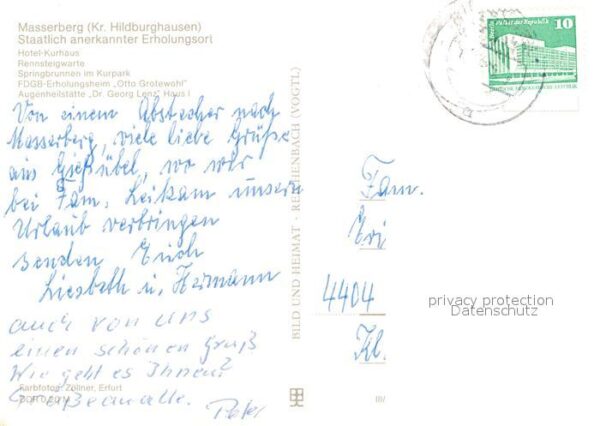 Masserberg (Kr. Hildburghausen)
Staatlich anerkannter Erholungsort
Hotel-Kurhaus
Rennsteigwarte
Springbrunnen im Kurpark
FDGB-Erholungsheim „Otto Grotewohl"
Augenheilstätte „Dr. Georg Lenz" Haus I
Von einem Abstecher nach
Masserberg, viele liebe Grüße
aus Gießübel, wo wir
bei Fam. Leikam unseren
Urlaub verbringen
senden Euch
Liesbeth u. Hermann
auch von uns
einen schönen Gruß
Wie geht es Ihnen?
Grüße an alle. Peter
Farbfoto: Zöllner, Erfurt
BILD UND HEIMAT · REICHENBACH (VOGTL)
10
Berlin, Palast der Republik
DEUTSCHE DEMOKRATISCHE REPUBLIK
Fam.
Eri
4404
Kl.
privacy protection
Datenschutz